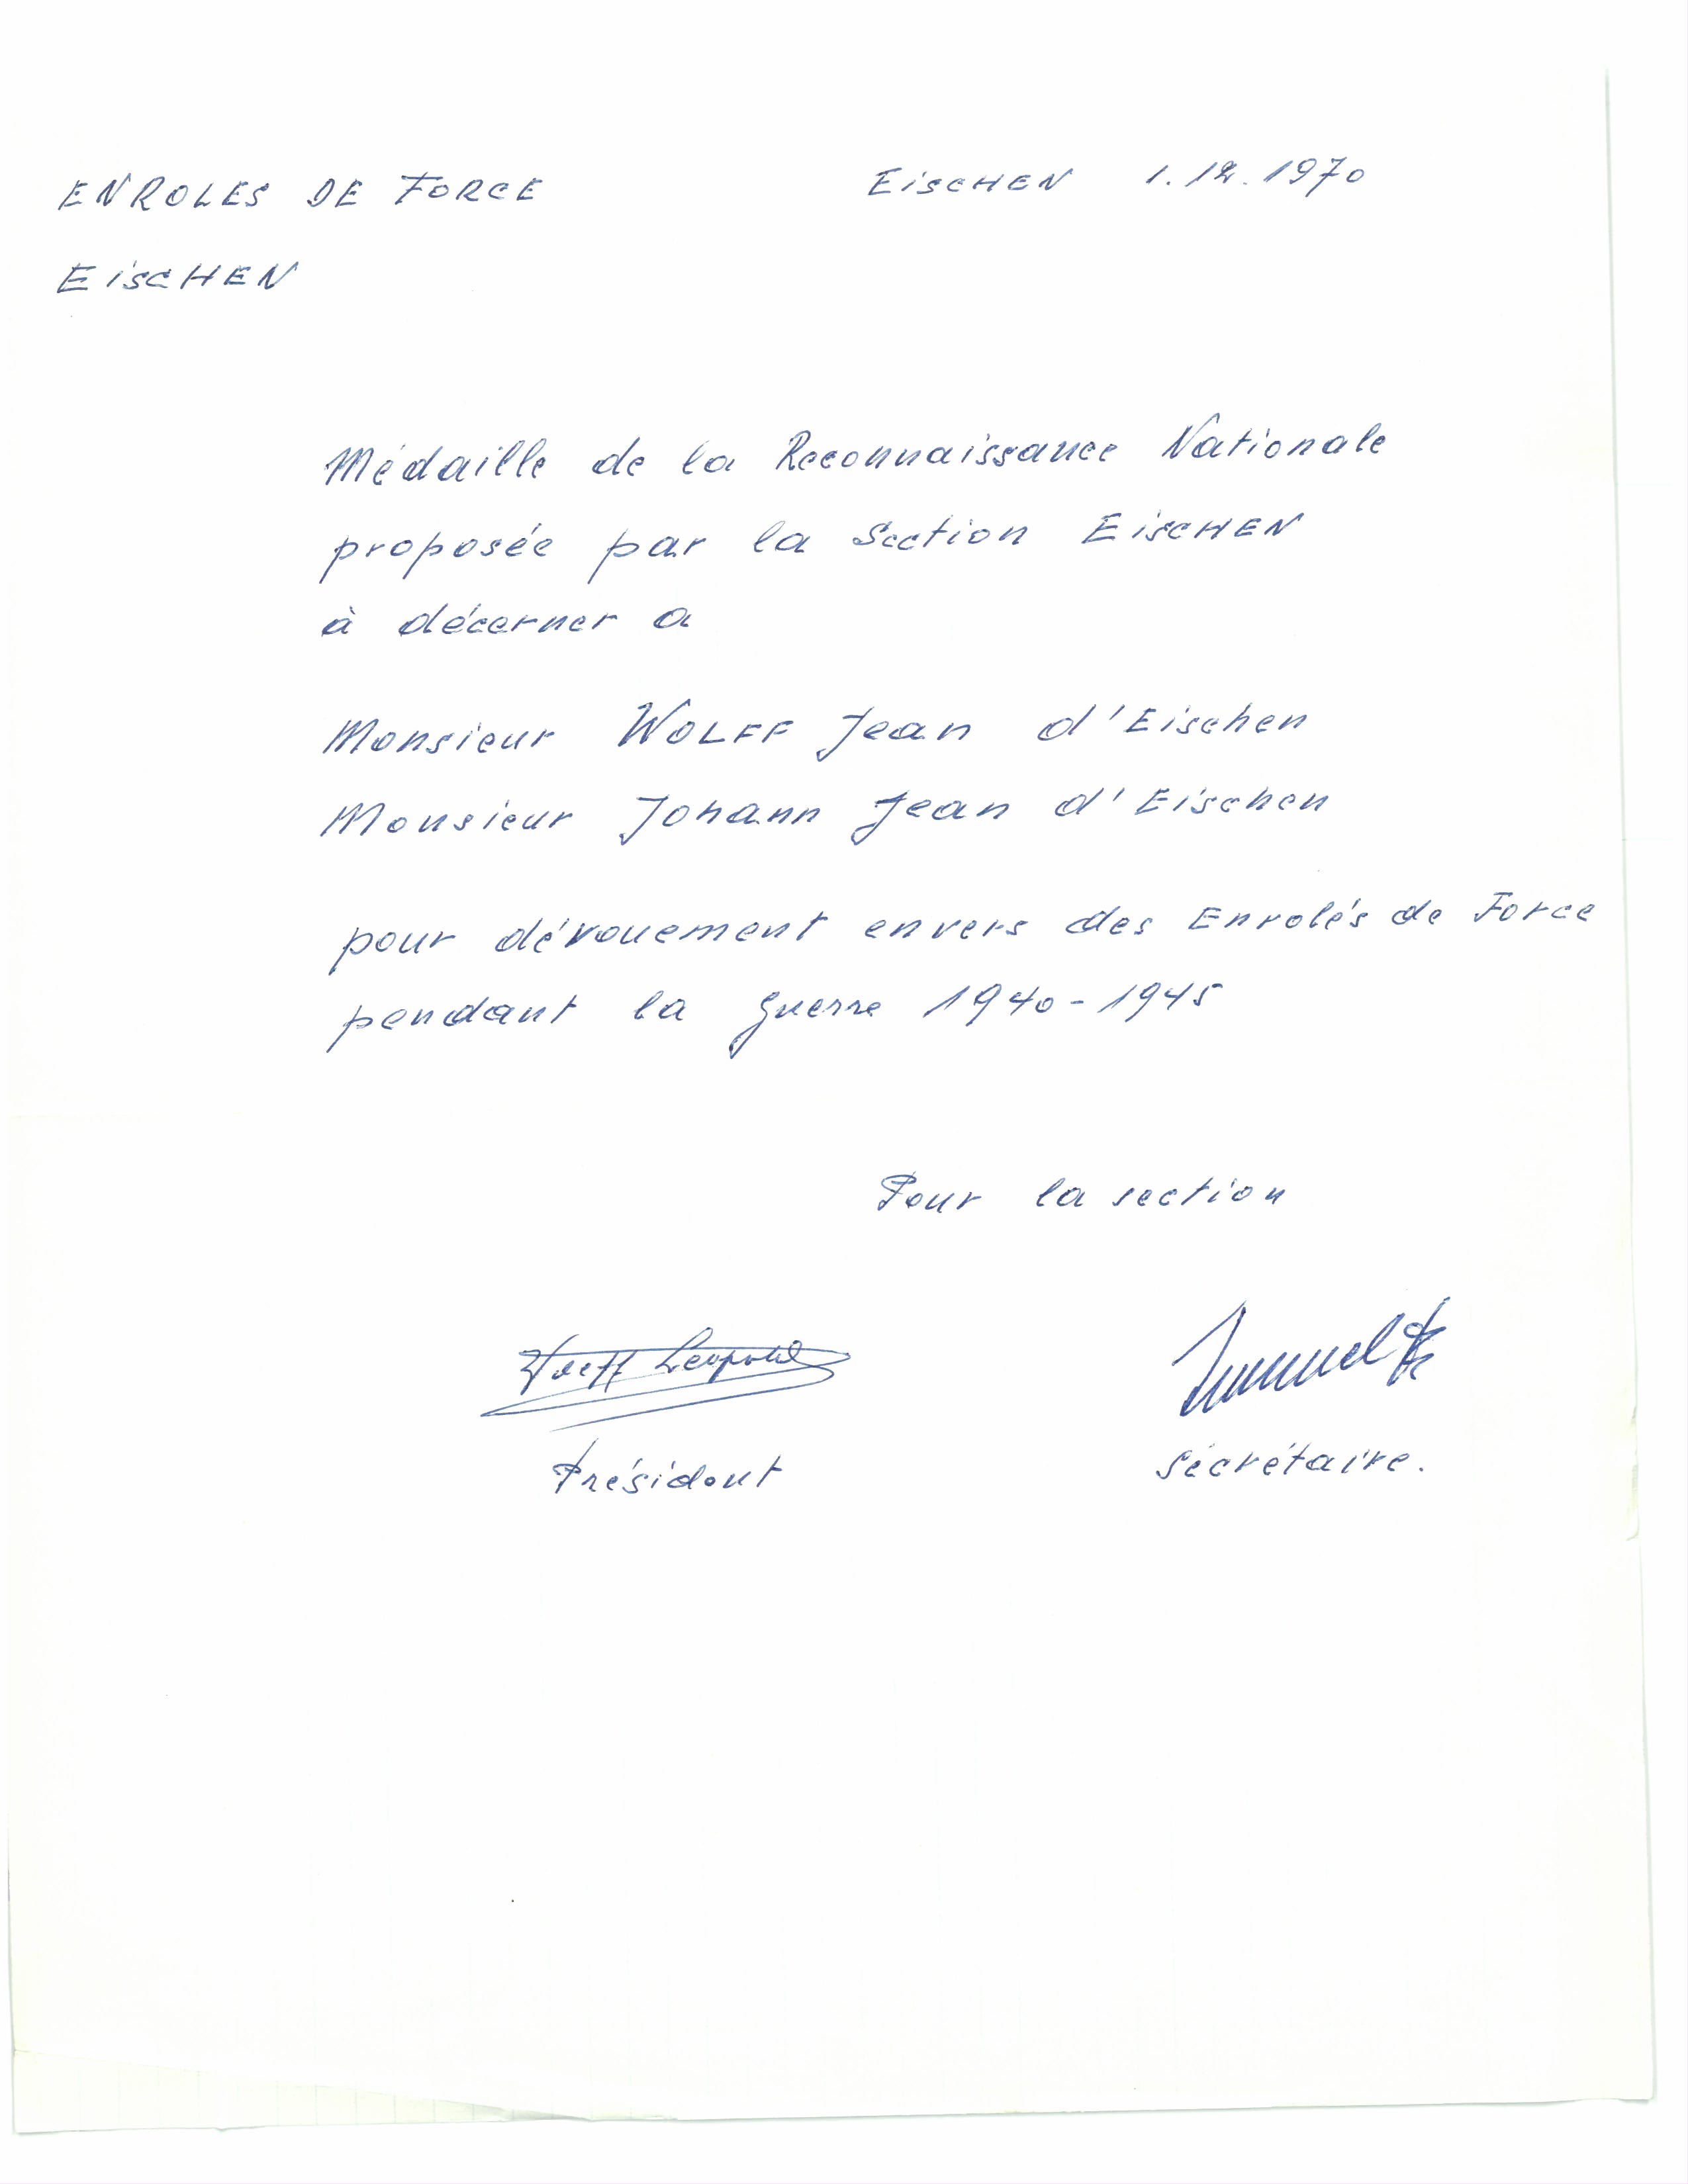 ENROLES DE FORCE
EisCHEN 1.12.1970
EisCHEN
Médaille de la Reconnaissance Nationale
proposée par la Section EisCHEN
à décerner a
Monsieur WOLFF Jean d'Eischen
Monsieur Johann Jean d'Eischen
pour dévouement envers des Enrolés de Force
pendant la guerre 1940-1945
Pour la section
Leopold
Président
sécrétaire.